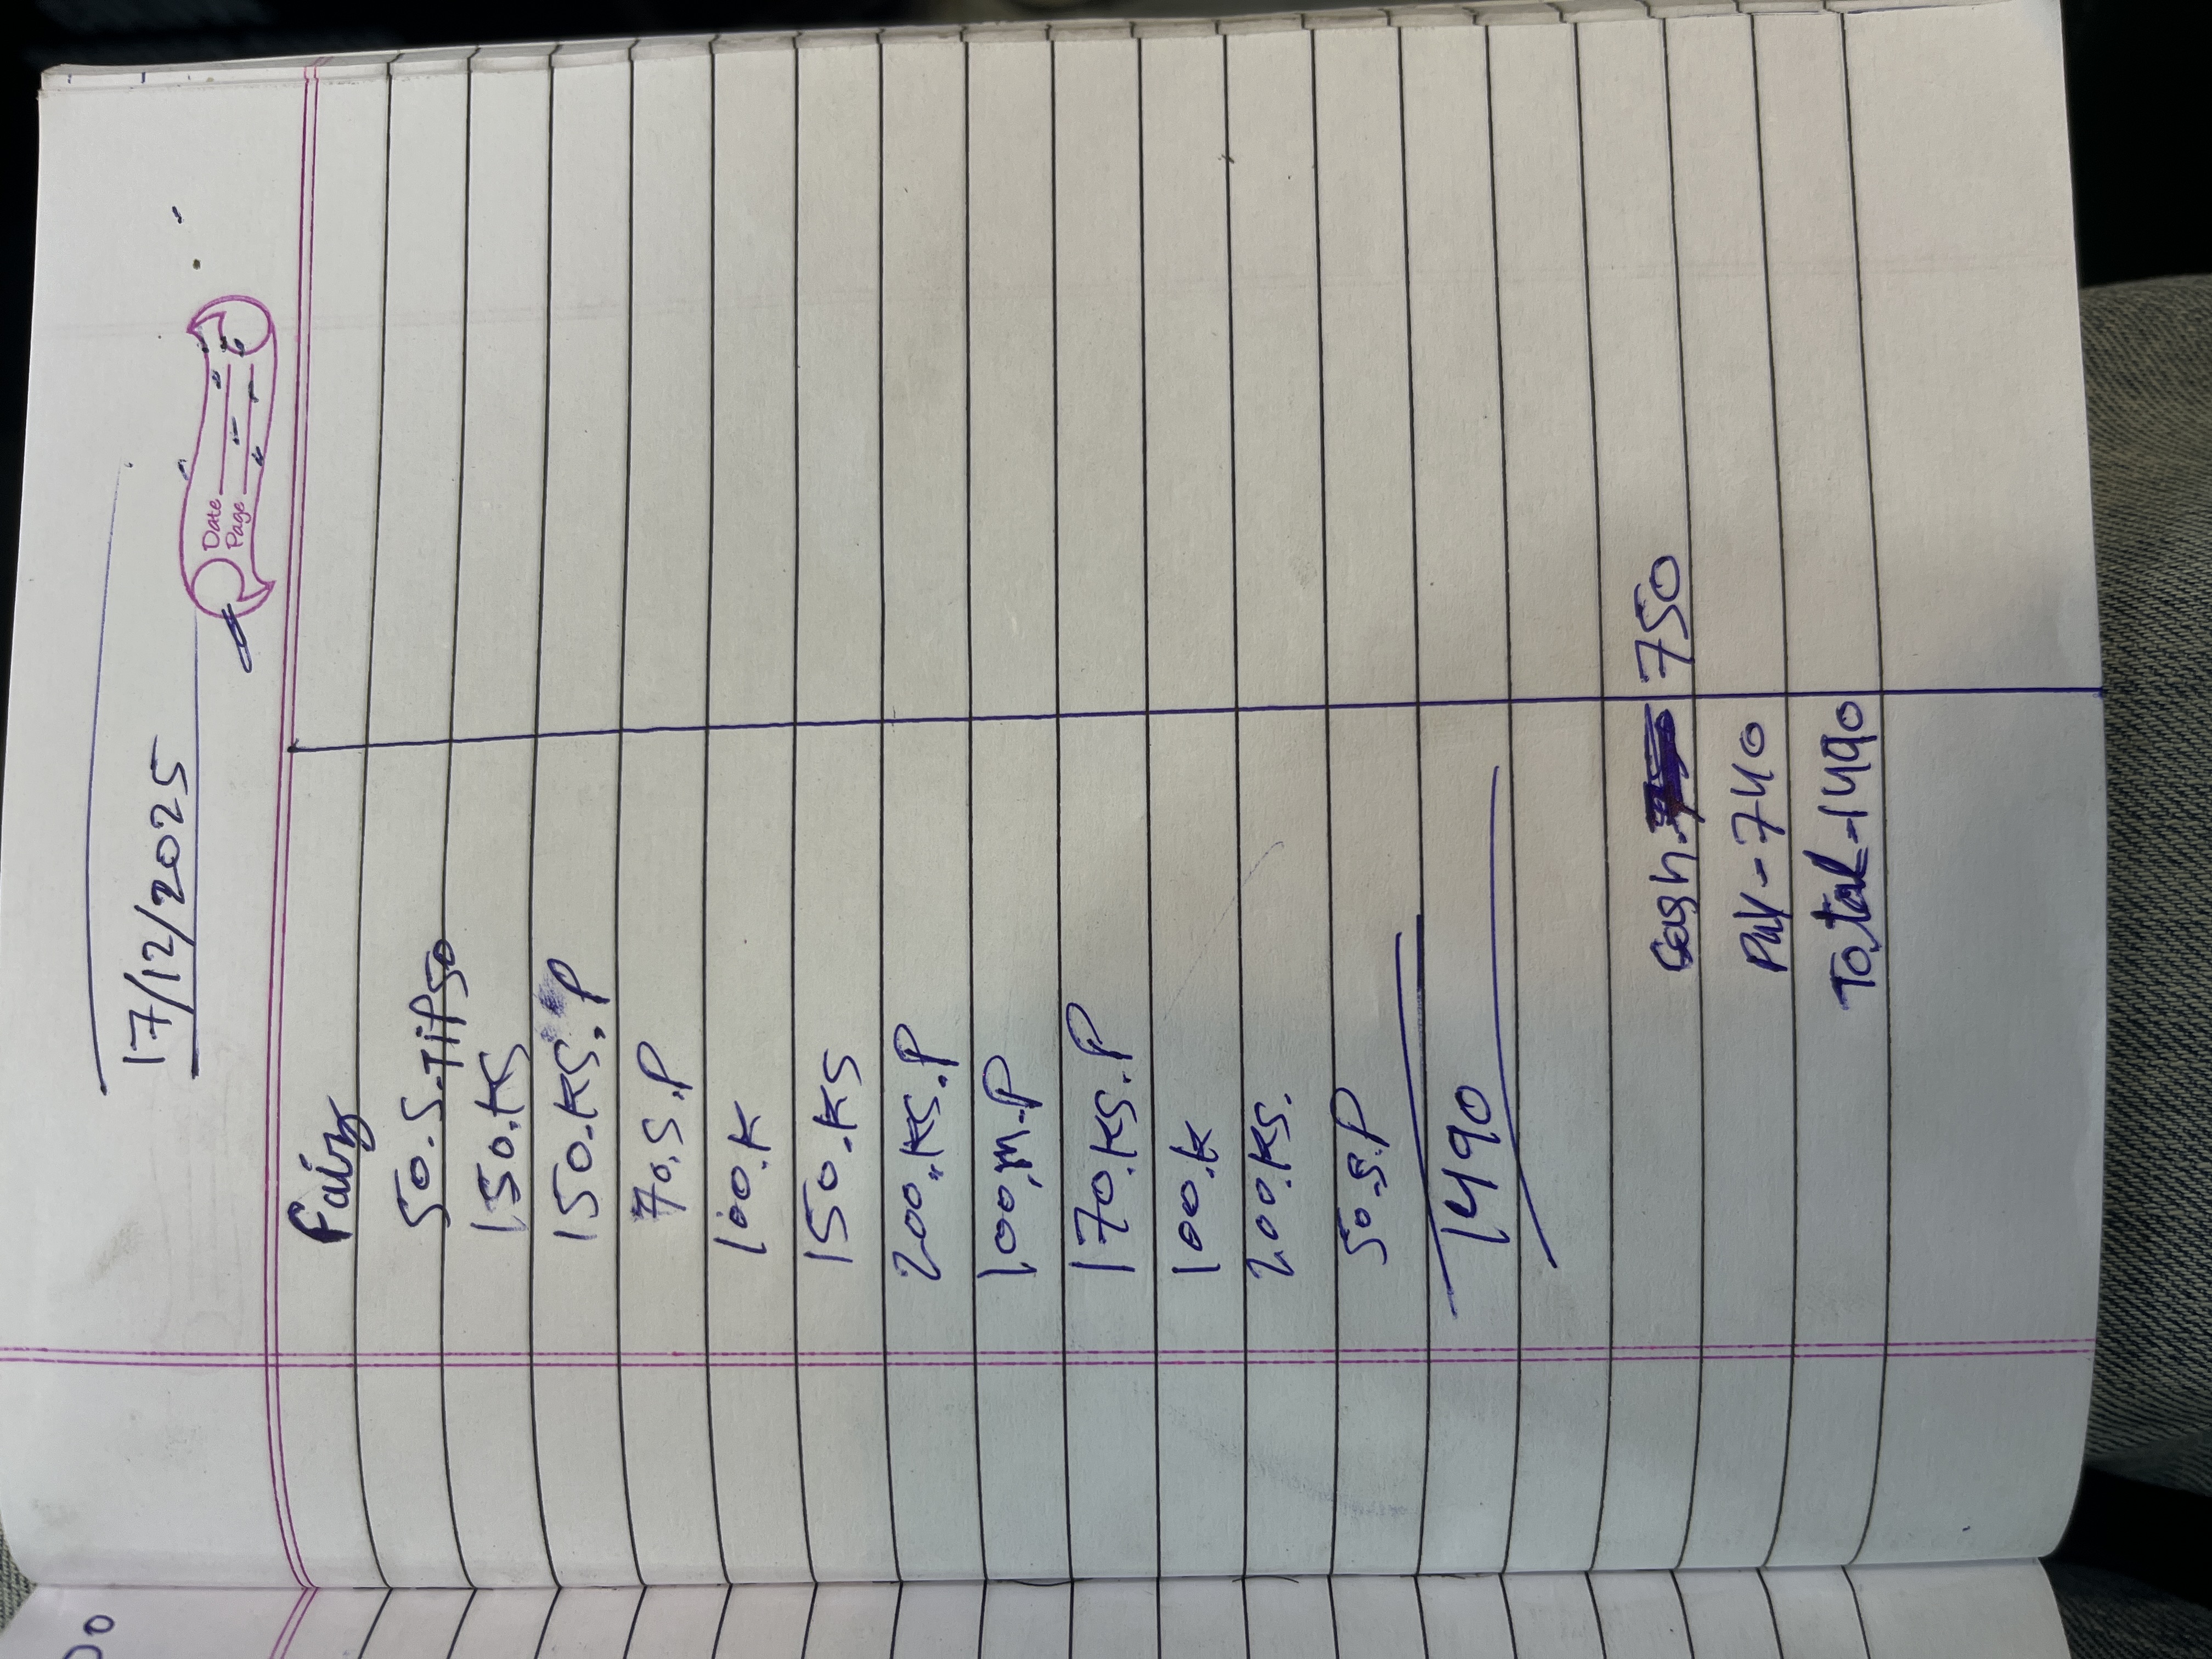 17/12/2025
Date
Page
Faiz
50.S.TiP50
150.KS
150.KS.P
70.S.P
100.K
150.KS
200.KS.P
100.M.P
170.KS.P
100.K
200.KS.
50.S.P
1490
Cash- 750
PAY-740
Total-1490